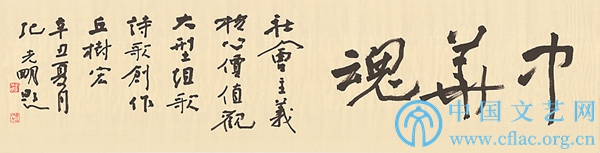 中華魂
社會主義
核心價值觀
大型組歌
詩歌創作
丘樹宏
辛丑夏月
纪光明題
中国文艺网
www.cflac.org.cn